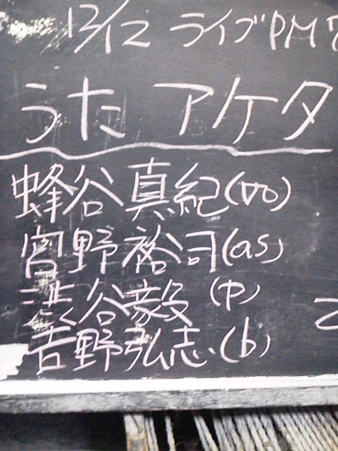 12/12 ライブPM7
うた アケタ
蜂谷 真紀(vo)
宮野裕司(as)
渋谷毅(p)
吉野弘志(b)